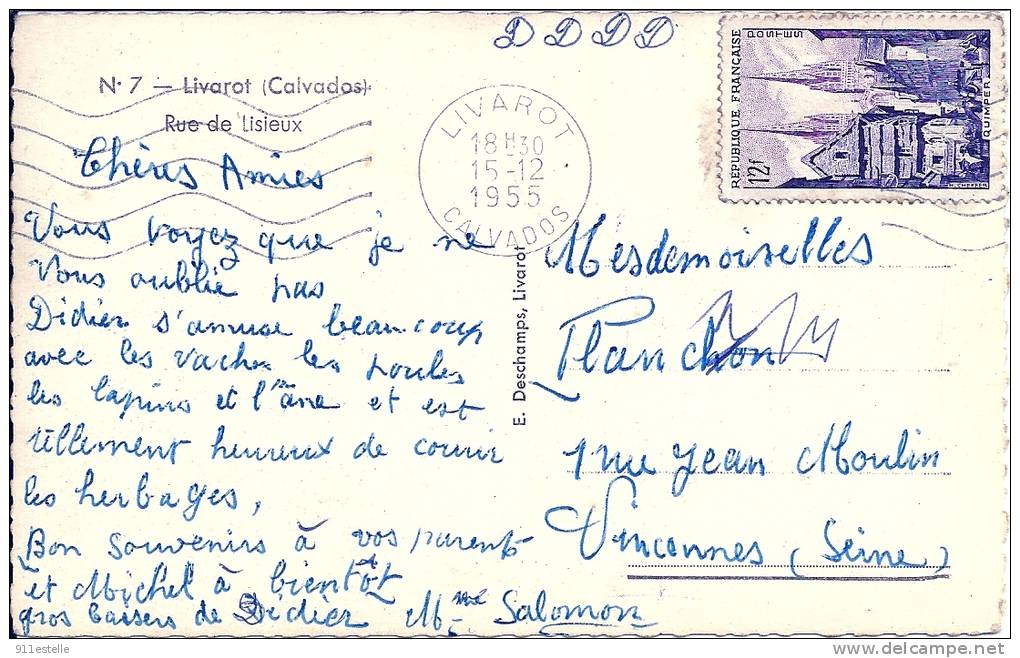 D D D D
N° 7 — Livarot (Calvados)
Rue de Lisieux
LIVAROT
18H30
15-12
1955
CALVADOS
RÉPUBLIQUE FRANÇAISE
POSTES
12f
QUIMPER
Chères Amies
Vous voyez que je ne
vous oublie pas
Didier s'amuse beaucoup
avec les vaches les poules
les lapins et l'âne et est
tellement heureux de courir
les herbages,
Bon Souvenirs à vos parents
et Michel à bientôt
gros baisers de Didier Mme Salomon
E. Deschamps, Livarot
Mesdemoiselles
Planchon
1 rue Jean Moulin
Vincennes (Seine)
911estelle
delcampe.net